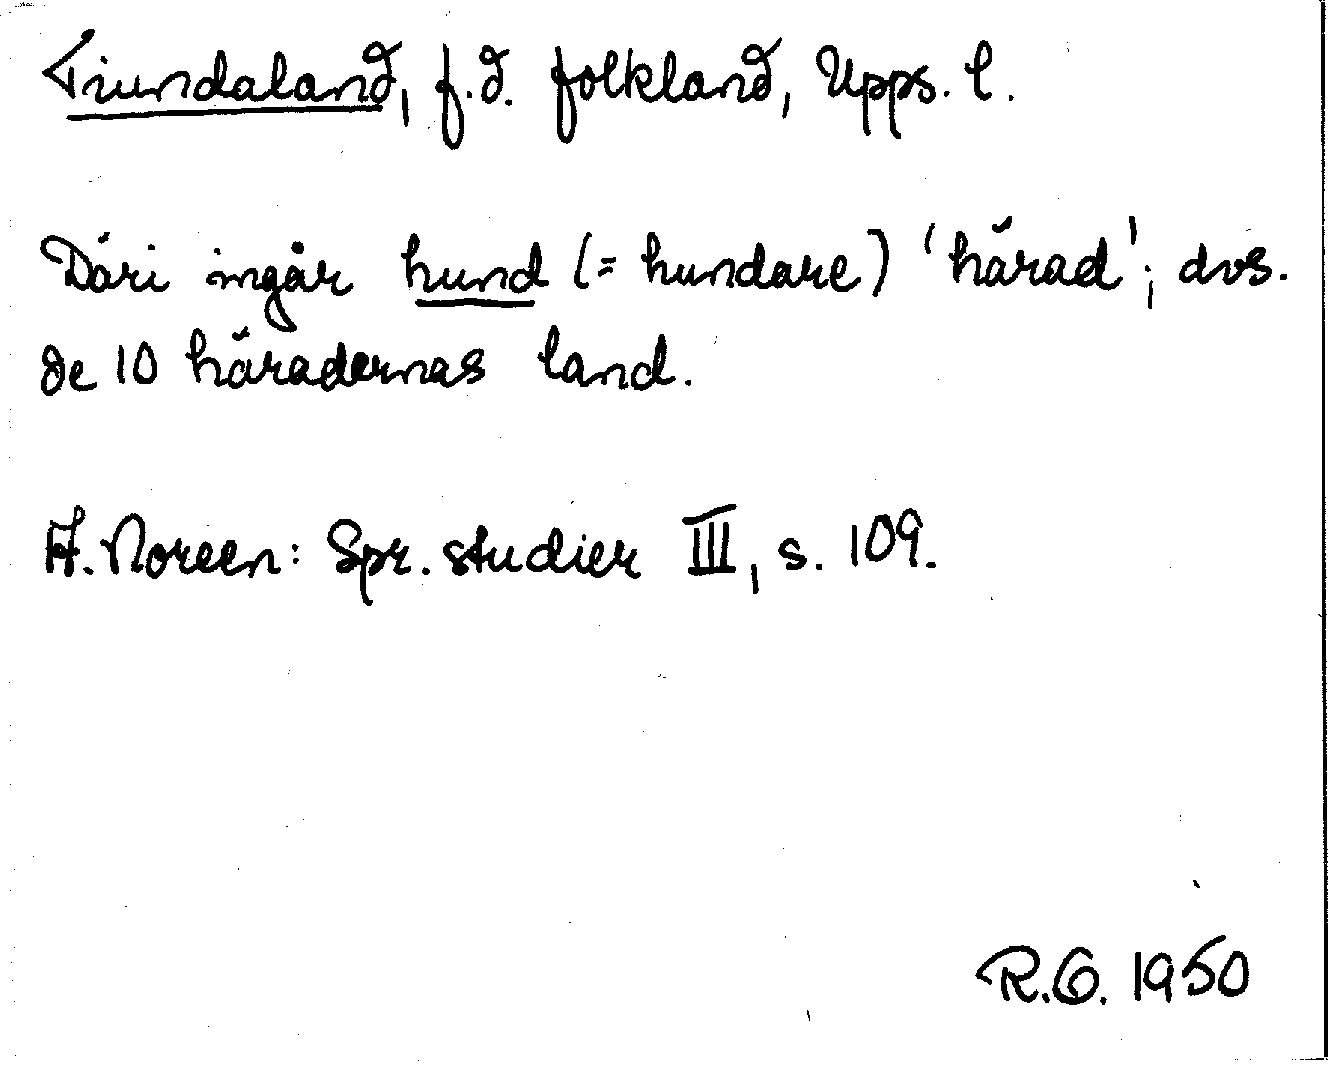 Tiundaland, f.d. folkland, Upps. l.
Däri ingår hund (= hundare) 'härad'; dvs.
de 10 häradernas land.
A. Noreen: Spr. studier III, s. 109.
R.G. 1950